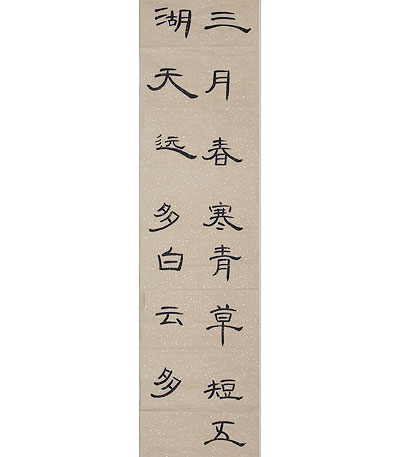 三月春寒青草短五
湖天远多白云多